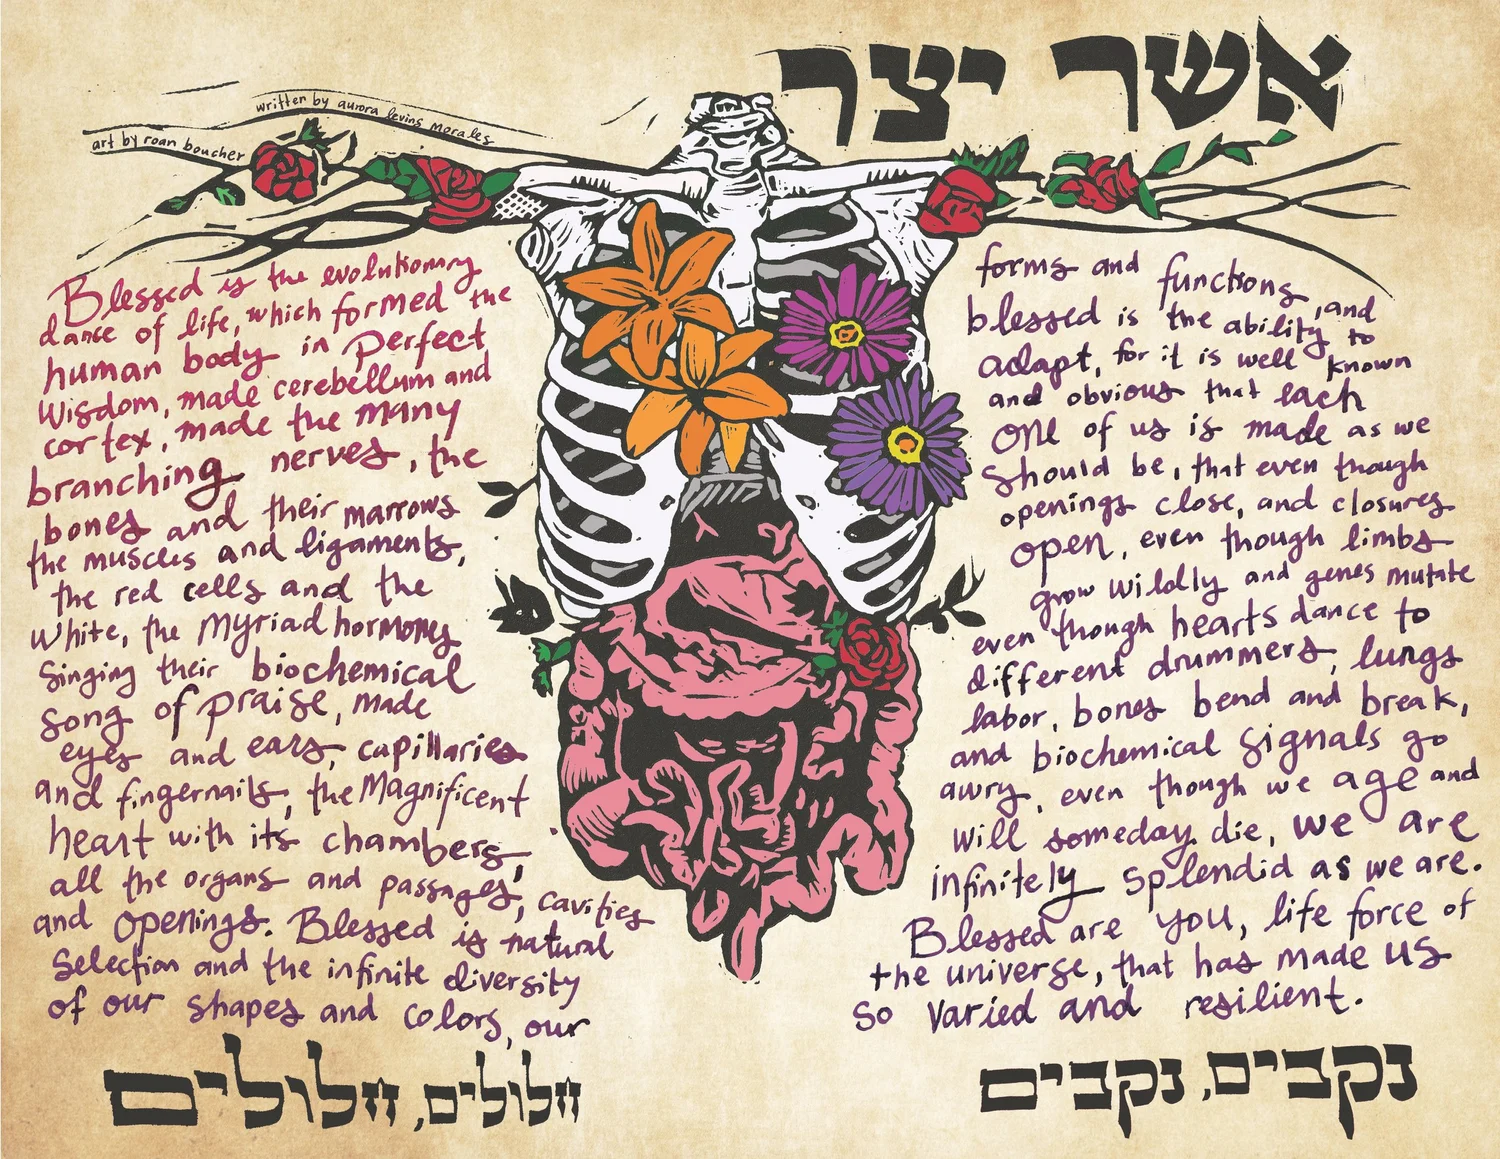 אשר יצר
written by aurora levins morales
art by roan boucher
Blessed is the evolutionary
dance of life, which formed the
human body in perfect
wisdom, made cerebellum and
cortex, made the many
branching nerves, the
bones and their marrows,
the muscles and ligaments,
the red cells and the
white, the myriad hormones
singing their biochemical
song of praise, made
eyes and ears, capillaries
and fingernails, the magnificent
heart with its chambers,
all the organs and passages, cavities
and openings. Blessed is natural
selection and the infinite diversity
of our shapes and colors, our
forms and functions, and
blessed is the ability to
adapt, for it is well known
and obvious that each
one of us is made as we
should be, that even though
openings close, and closures
open, even though limbs
grow wildly and genes mutate
even though hearts dance to
different drummers, lungs
labor, bones bend and break,
and biochemical signals go
awry, even though we age and
will someday die, we are
infinitely splendid as we are.
Blessed are you, life force of
the universe, that has made us
so varied and resilient.
נקבים, נקבים
חלולים, חלולים